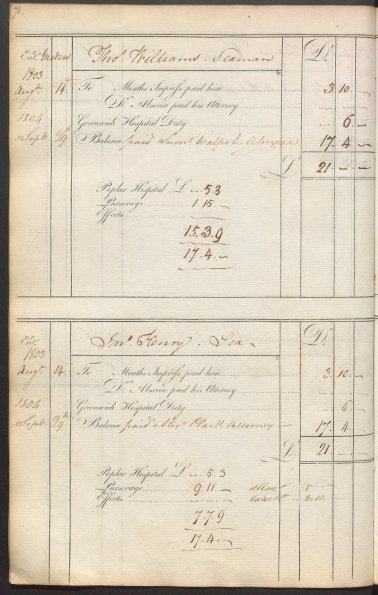 Thos. Williams. Seaman Dr.
Ent. Madras
1803
Augt. 14. To Months Imprest paid him 3. 10. —
Do. Absence paid his Attorney — —
1804 Greenwich Hospital Duty — 6 —
Septr. 29th Balance paid Attorney 17. 4 —
£ 21. — —
Poplar Hospital £ — 5.3
Purserage 1 15 —
Effects
15. 3. 9
17. 4. —
Jno. Henry. Sea— Dr.
Ent.
1803
Augt. 14. To Months Imprest paid him 3. 10. —
Do. Absence paid his Attorney — —
1804 Greenwich Hospital Duty — 6 —
Septr. 29th Balance paid Alexr. Plack Attorney — 17. 4 —
£ 21. — —
Poplar Hospital £ — 5. 3
Purserage 9. 11. —
Effects
7. 7. 9
17. 4. —